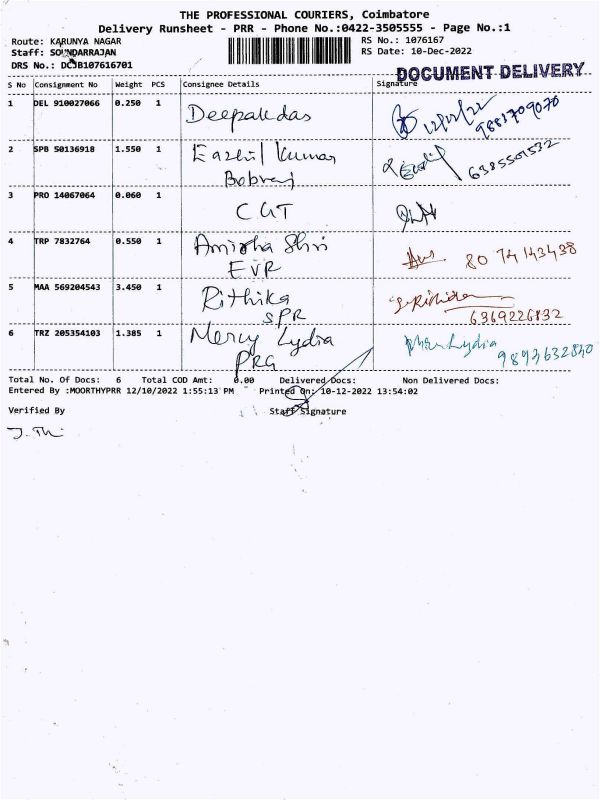 THE PROFESSIONAL COURIERS, Coimbatore
Delivery Runsheet - PRR - Phone No.:0422-3505555 - Page No.:1
Route: KARUNYA NAGAR RS No.: 1076167
Staff: SOUNDARRAJAN RS Date: 10-Dec-2022
DRS No.: DCJB107616701 DOCUMENT DELIVERY
S No Consignment No Weight PCS Consignee Details Signature
1 DEL 910027066 0.250 1 Deepakdas 12/12/22
9883709070
2 SPB 50136918 1.550 1 Eazhil Kumar 6385501532
Bobraj
3 PRO 14067064 0.060 1 CGT
4 TRP 7832764 0.550 1 Amirtha Shri 80 74143438
EVR
5 MAA 569204543 3.450 1 Rithika
SPR 6369226832
6 TRZ 205354103 1.385 1 Mercy Lydia Lydia
PRG 9893632830
Total No. Of Docs: 6 Total COD Amt: 0.00 Delivered Docs: Non Delivered Docs:
Entered By :MOORTHYPRR 12/10/2022 1:55:13 PM Printed On: 10-12-2022 13:54:02
Verified By Staff Signature